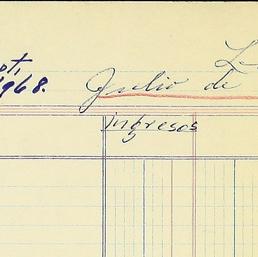 1968.
Julio de
ingresos